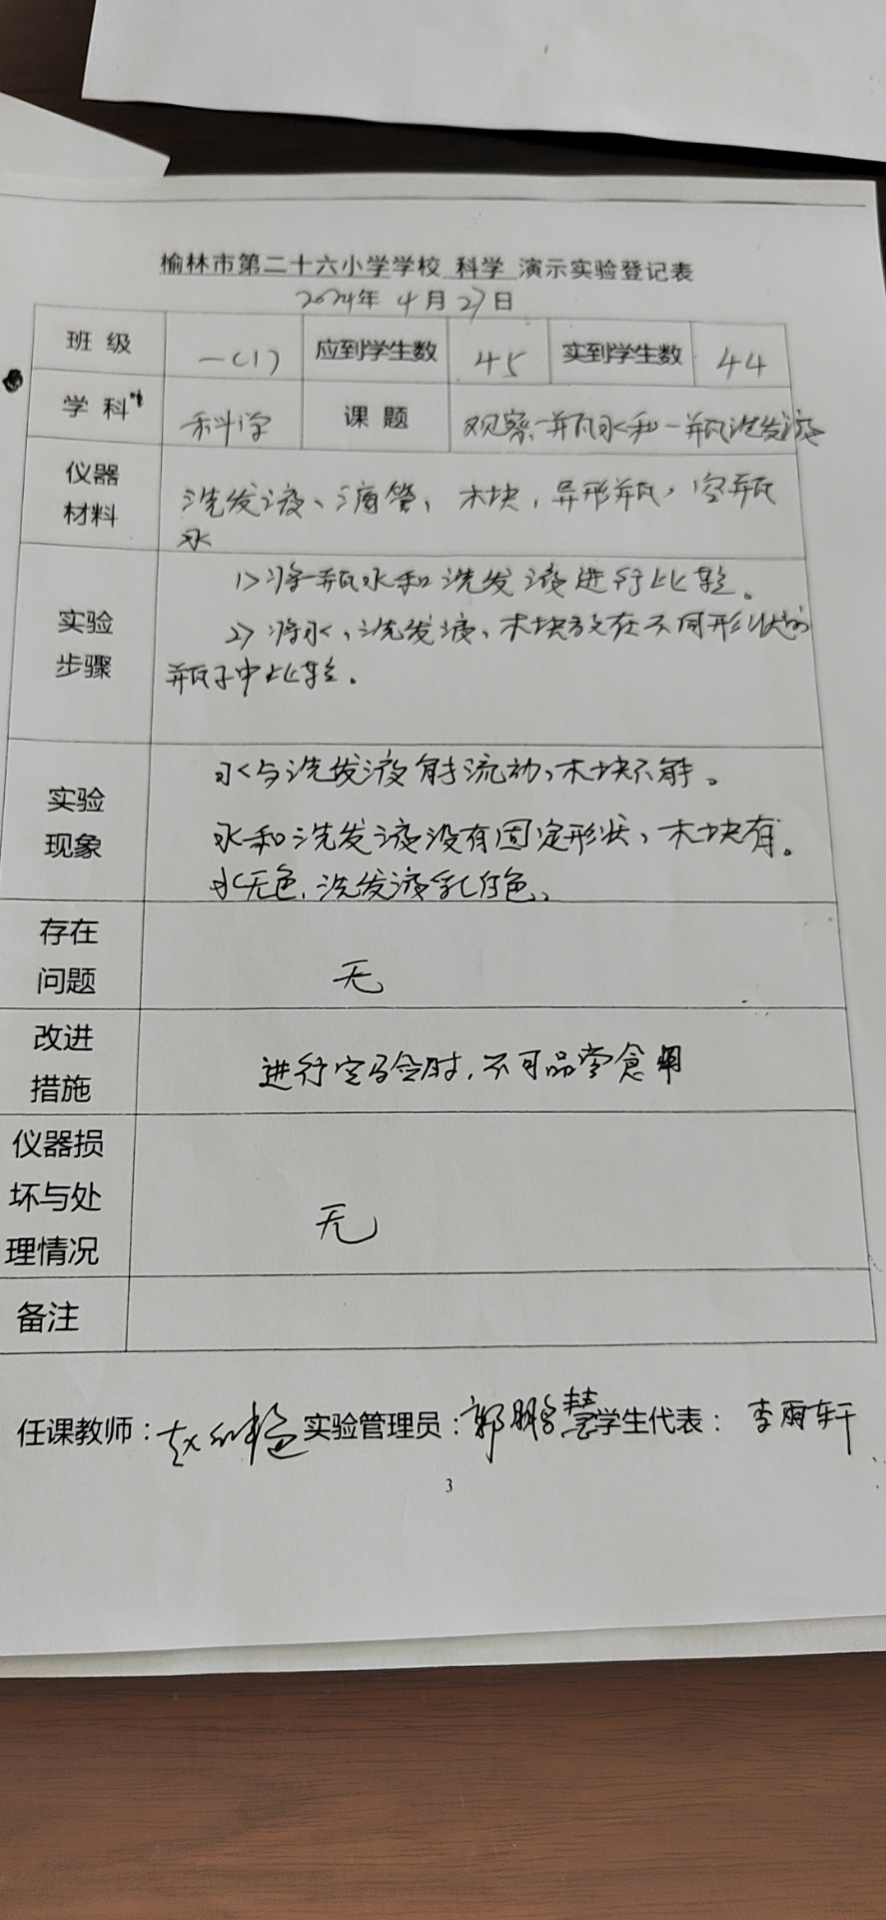 榆林市第二十六小学学校 科学 演示实验登记表
2024年 4月 27日
班级 一(1) 应到学生数 45 实到学生数 44
学科 科学 课题 观察一瓶水和一瓶洗发液
仪器
材料
洗发液、滴管, 木块, 异形瓶, 空瓶
水
实验
步骤
1>将一瓶水和洗发液进行比较。
2>将水、洗发液、木块放在不同形状的
瓶子中比较。
实验
现象
水与洗发液能流动,木块不能。
水和洗发液没有固定形状,木块有。
水无色,洗发液乳白色、
存在
问题
无
改进
措施
进行实验时,不可品尝食用
仪器损
坏与处
理情况
无
备注
任课教师: 赵 实验管理员: 郭 慧 学生代表: 李雨轩
3